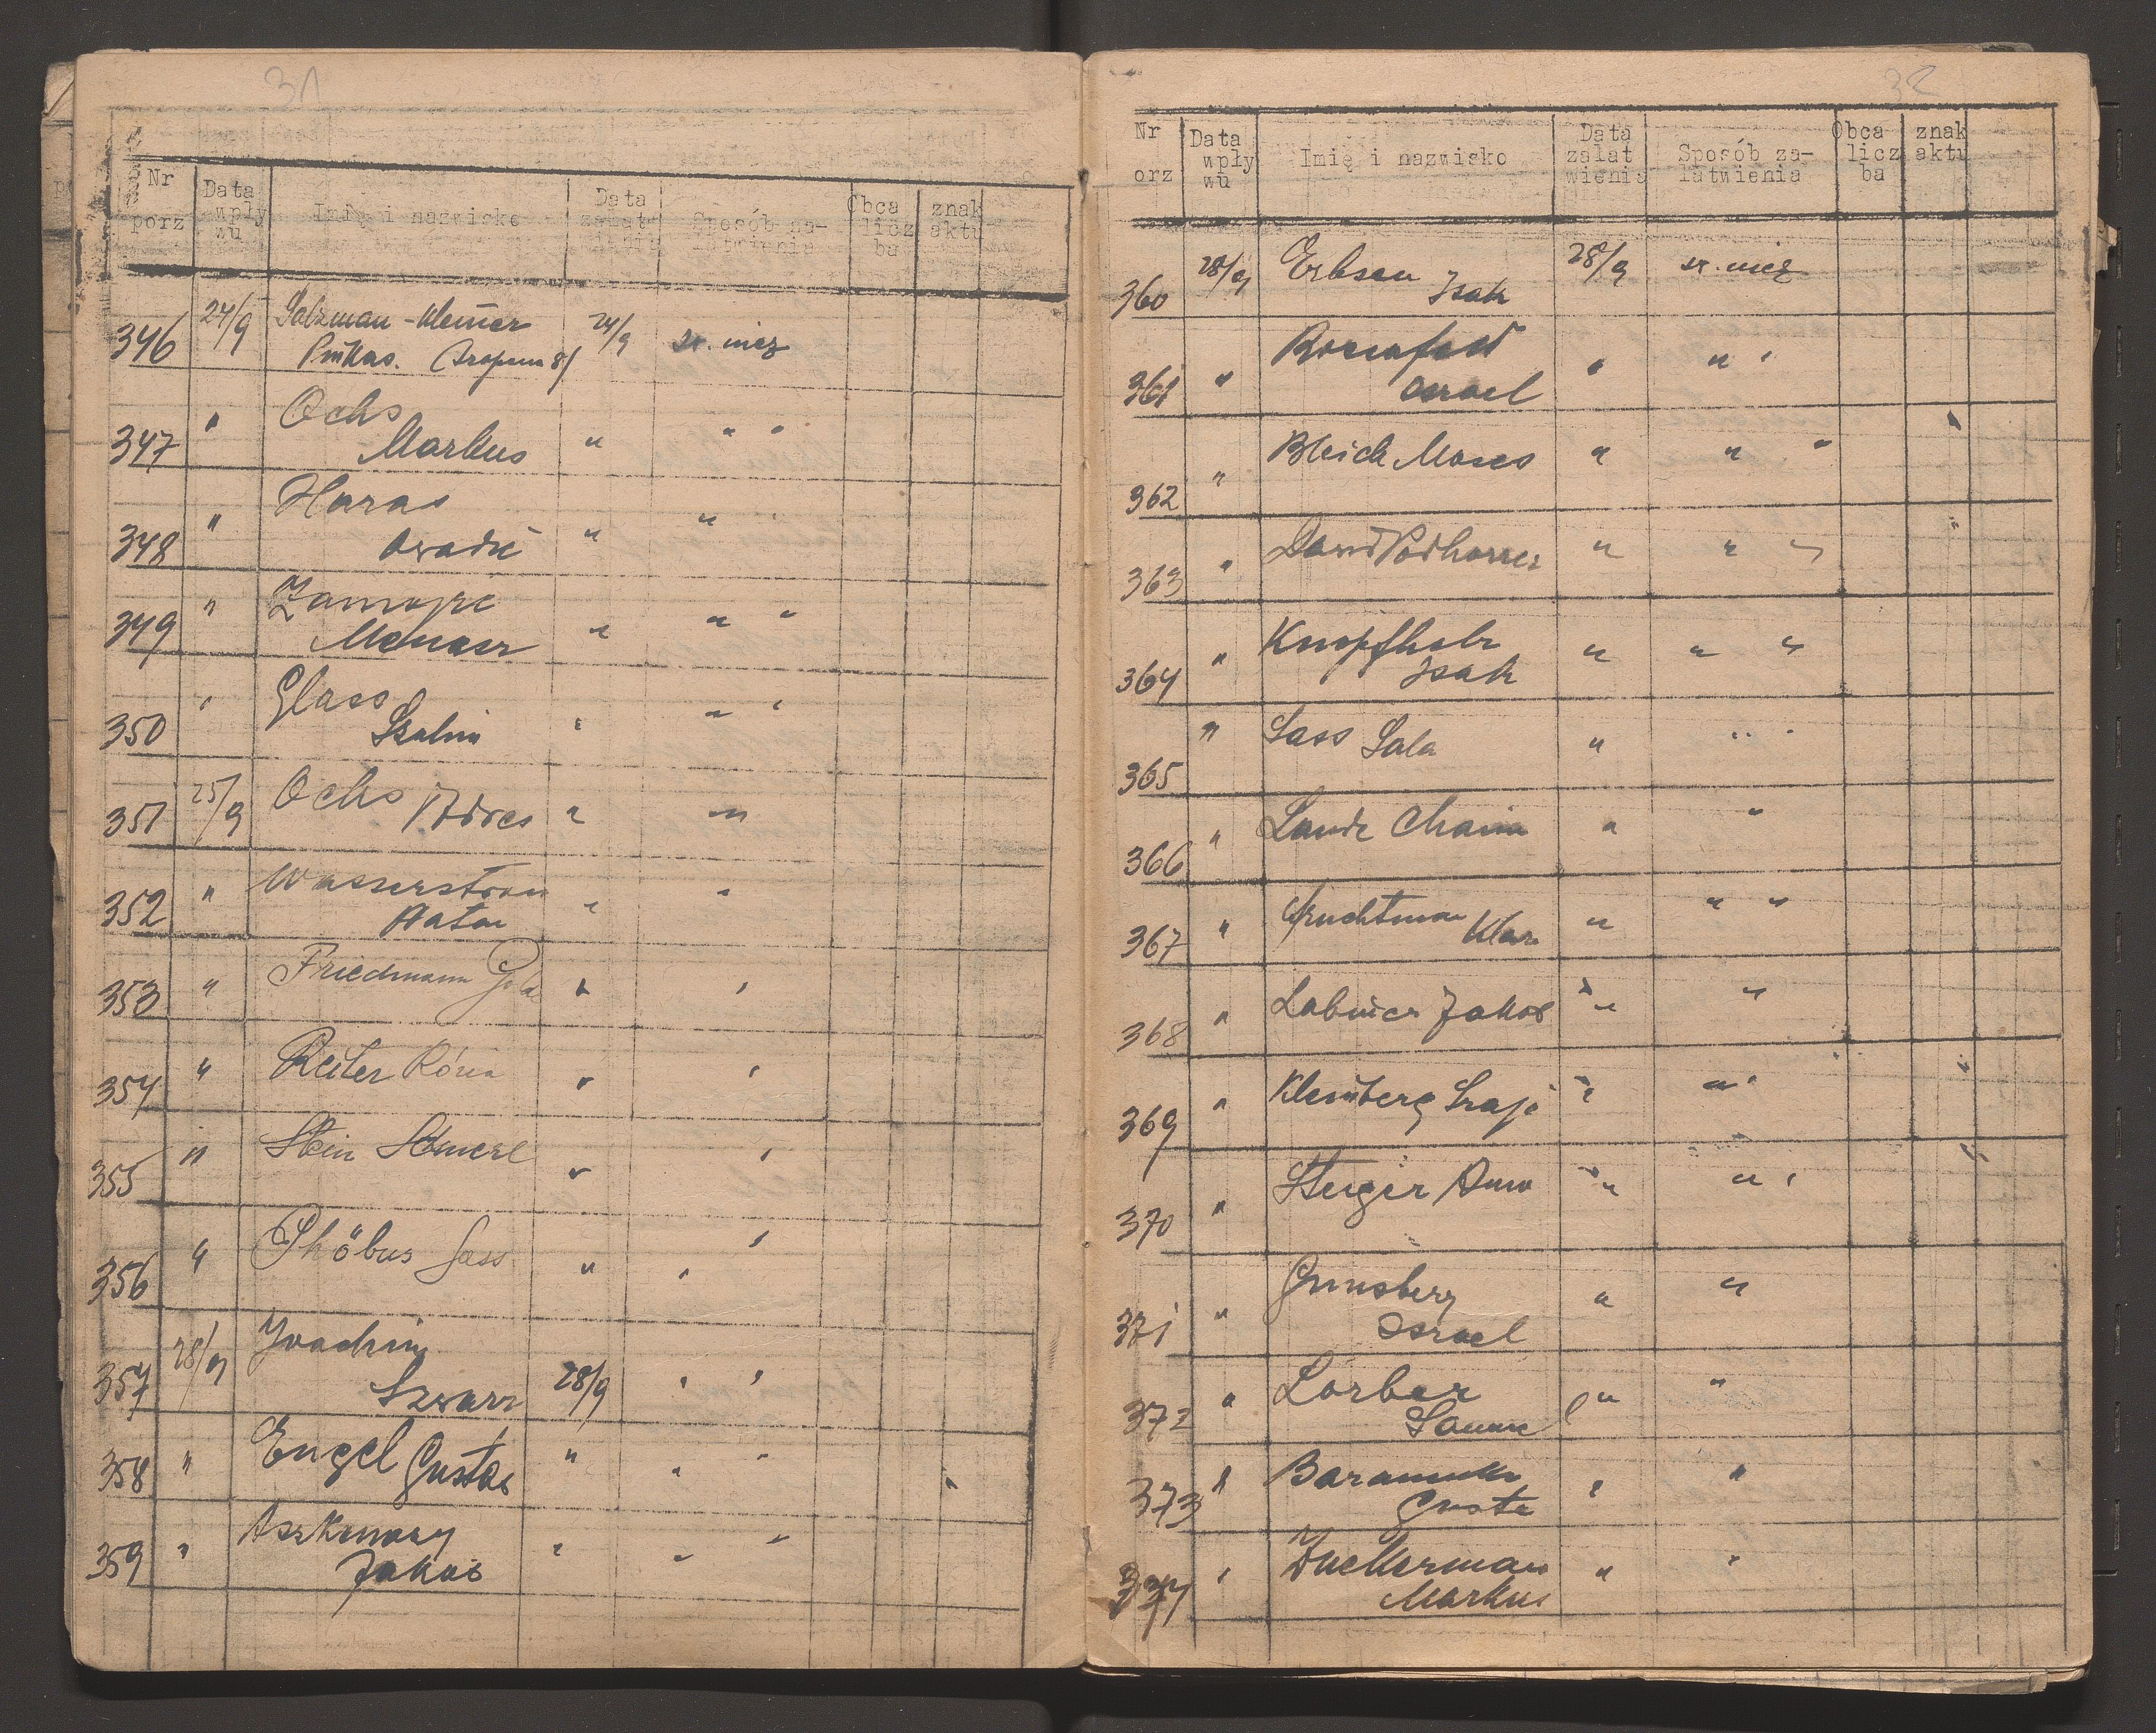 31
Nr porz
Data wpły wu
Imię i nazwisko
Data załat wienia
Sposób za- łatwienia
Obca licz ba
znak aktu
346 24/9 Salzman - Kleiner 24/9 sr. niez
Pinkas.
347 " Ochs
Markus " " "
348 " Haras
" "
349 " Zamojre
" " "
350 " Glass
Szulim " " "
351 25/9 Ochs " "
352 " Wasserstrom
Natan " "
353 " Friedmann " "
354 " Reiter Róża " "
355 " Stein " "
356 " Phöbus Sass " " "
357 28/9 Joachim
Szwarz 28/9 " "
358 " Engel Gustav " " "
359 " Aszkenazy
Jakób " " "
32
Nr orz
Data wpły wu
Imię i nazwisko
Data załat wienia
Sposób za- łatwienia
Obca licz ba
znak aktu
360 28/9 Erbsen 28/9 sr. niez
Isak
361 " Rosenfeld " " "
Israel
362 " Bleich Moses " " "
363 " Dawid Podhorcer " " "
364 " Knopfholz " " "
Isak
365 " Sass Sala " " "
366 " Lande Chaim " "
367 " Fruchtman Klara " " "
368 " Jakob " "
369 " Kleinberg " " "
370 " Steiger Anna " " "
371 " Grunsberg " "
Israel
372 " Lorber " "
Samuel
373 " " "
Gusta
374 " Zuckerman " "
Markus